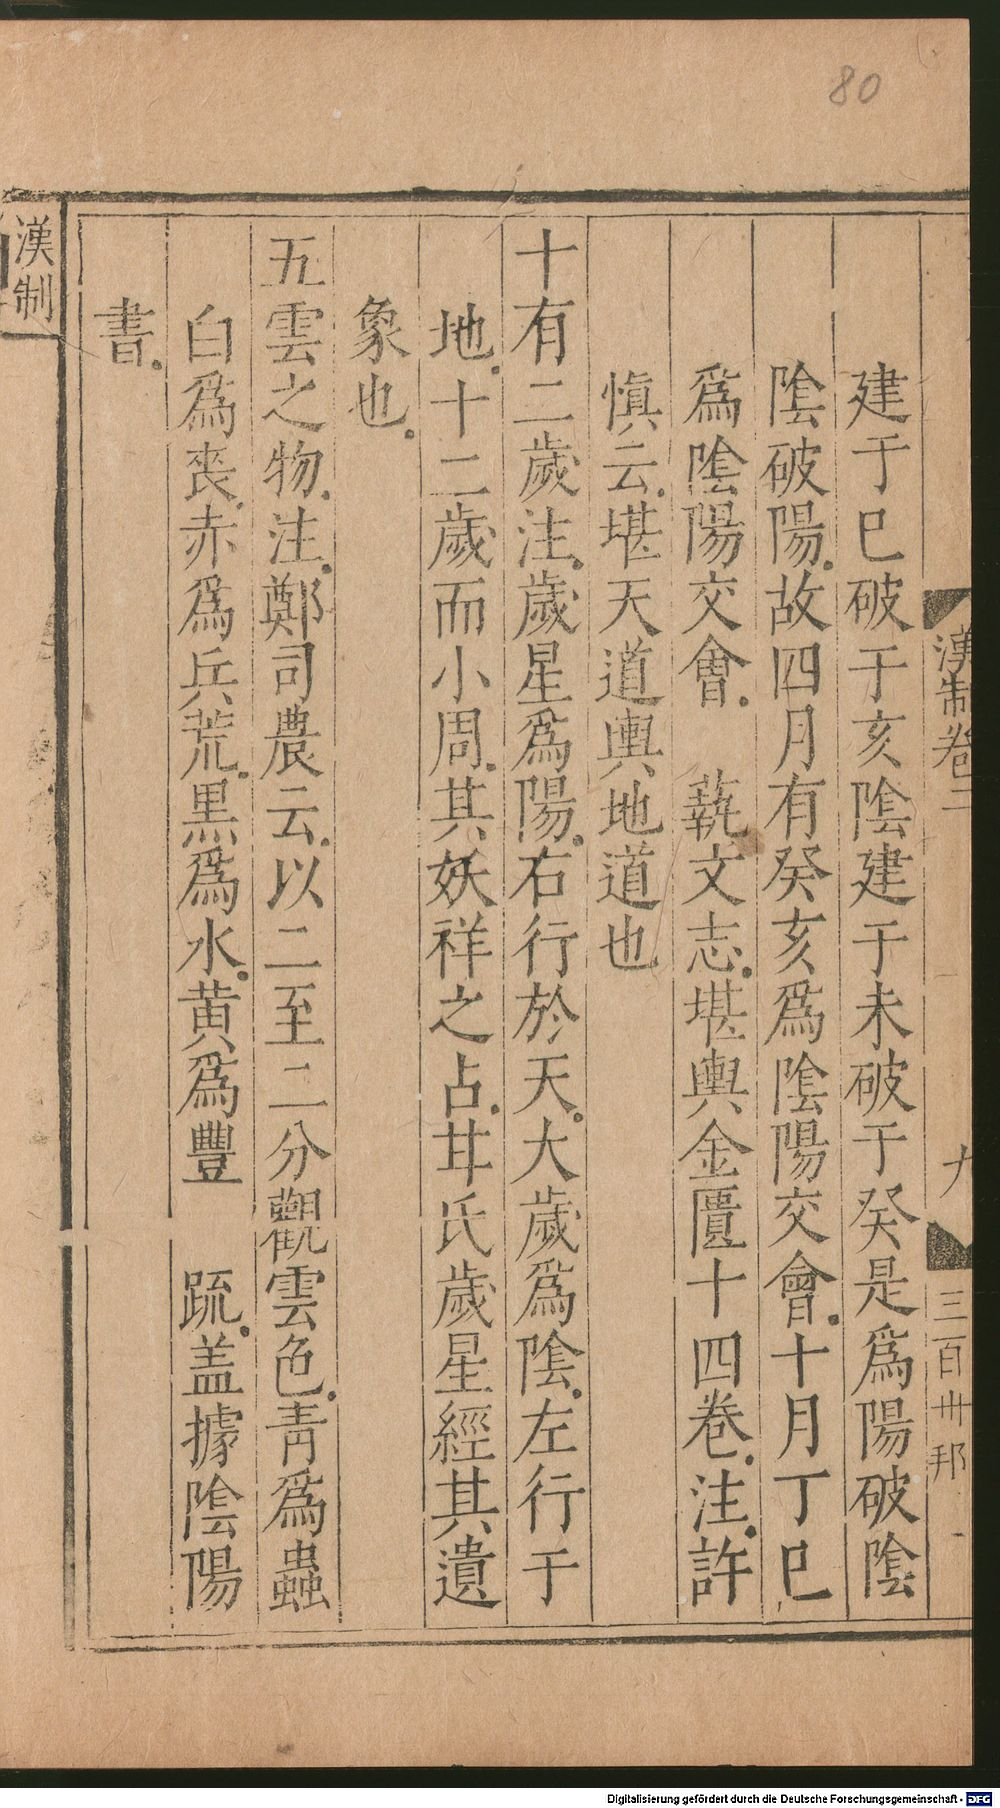 80
漢制卷二
九
三百卅邦
建于巳破于亥陰建于未破于癸是爲陽破陰
陰破陽故四月有癸亥爲陰陽交會十月丁巳
爲陰陽交會　蓺文志堪輿金匱十四卷注許
愼云堪天道輿地道也
十有二歲注歲星爲陽右行於天大歲爲陰左行于
地十二歲而小周其妖祥之占甘氏歲星經其遺
象也
五雲之物注鄭司農云以二至二分觀雲色靑爲蟲
白爲喪赤爲兵荒黑爲水黃爲豐　疏蓋據陰陽
書
漢制
Digitalisierung gefördert durch die Deutsche Forschungsgemeinschaft - DFG